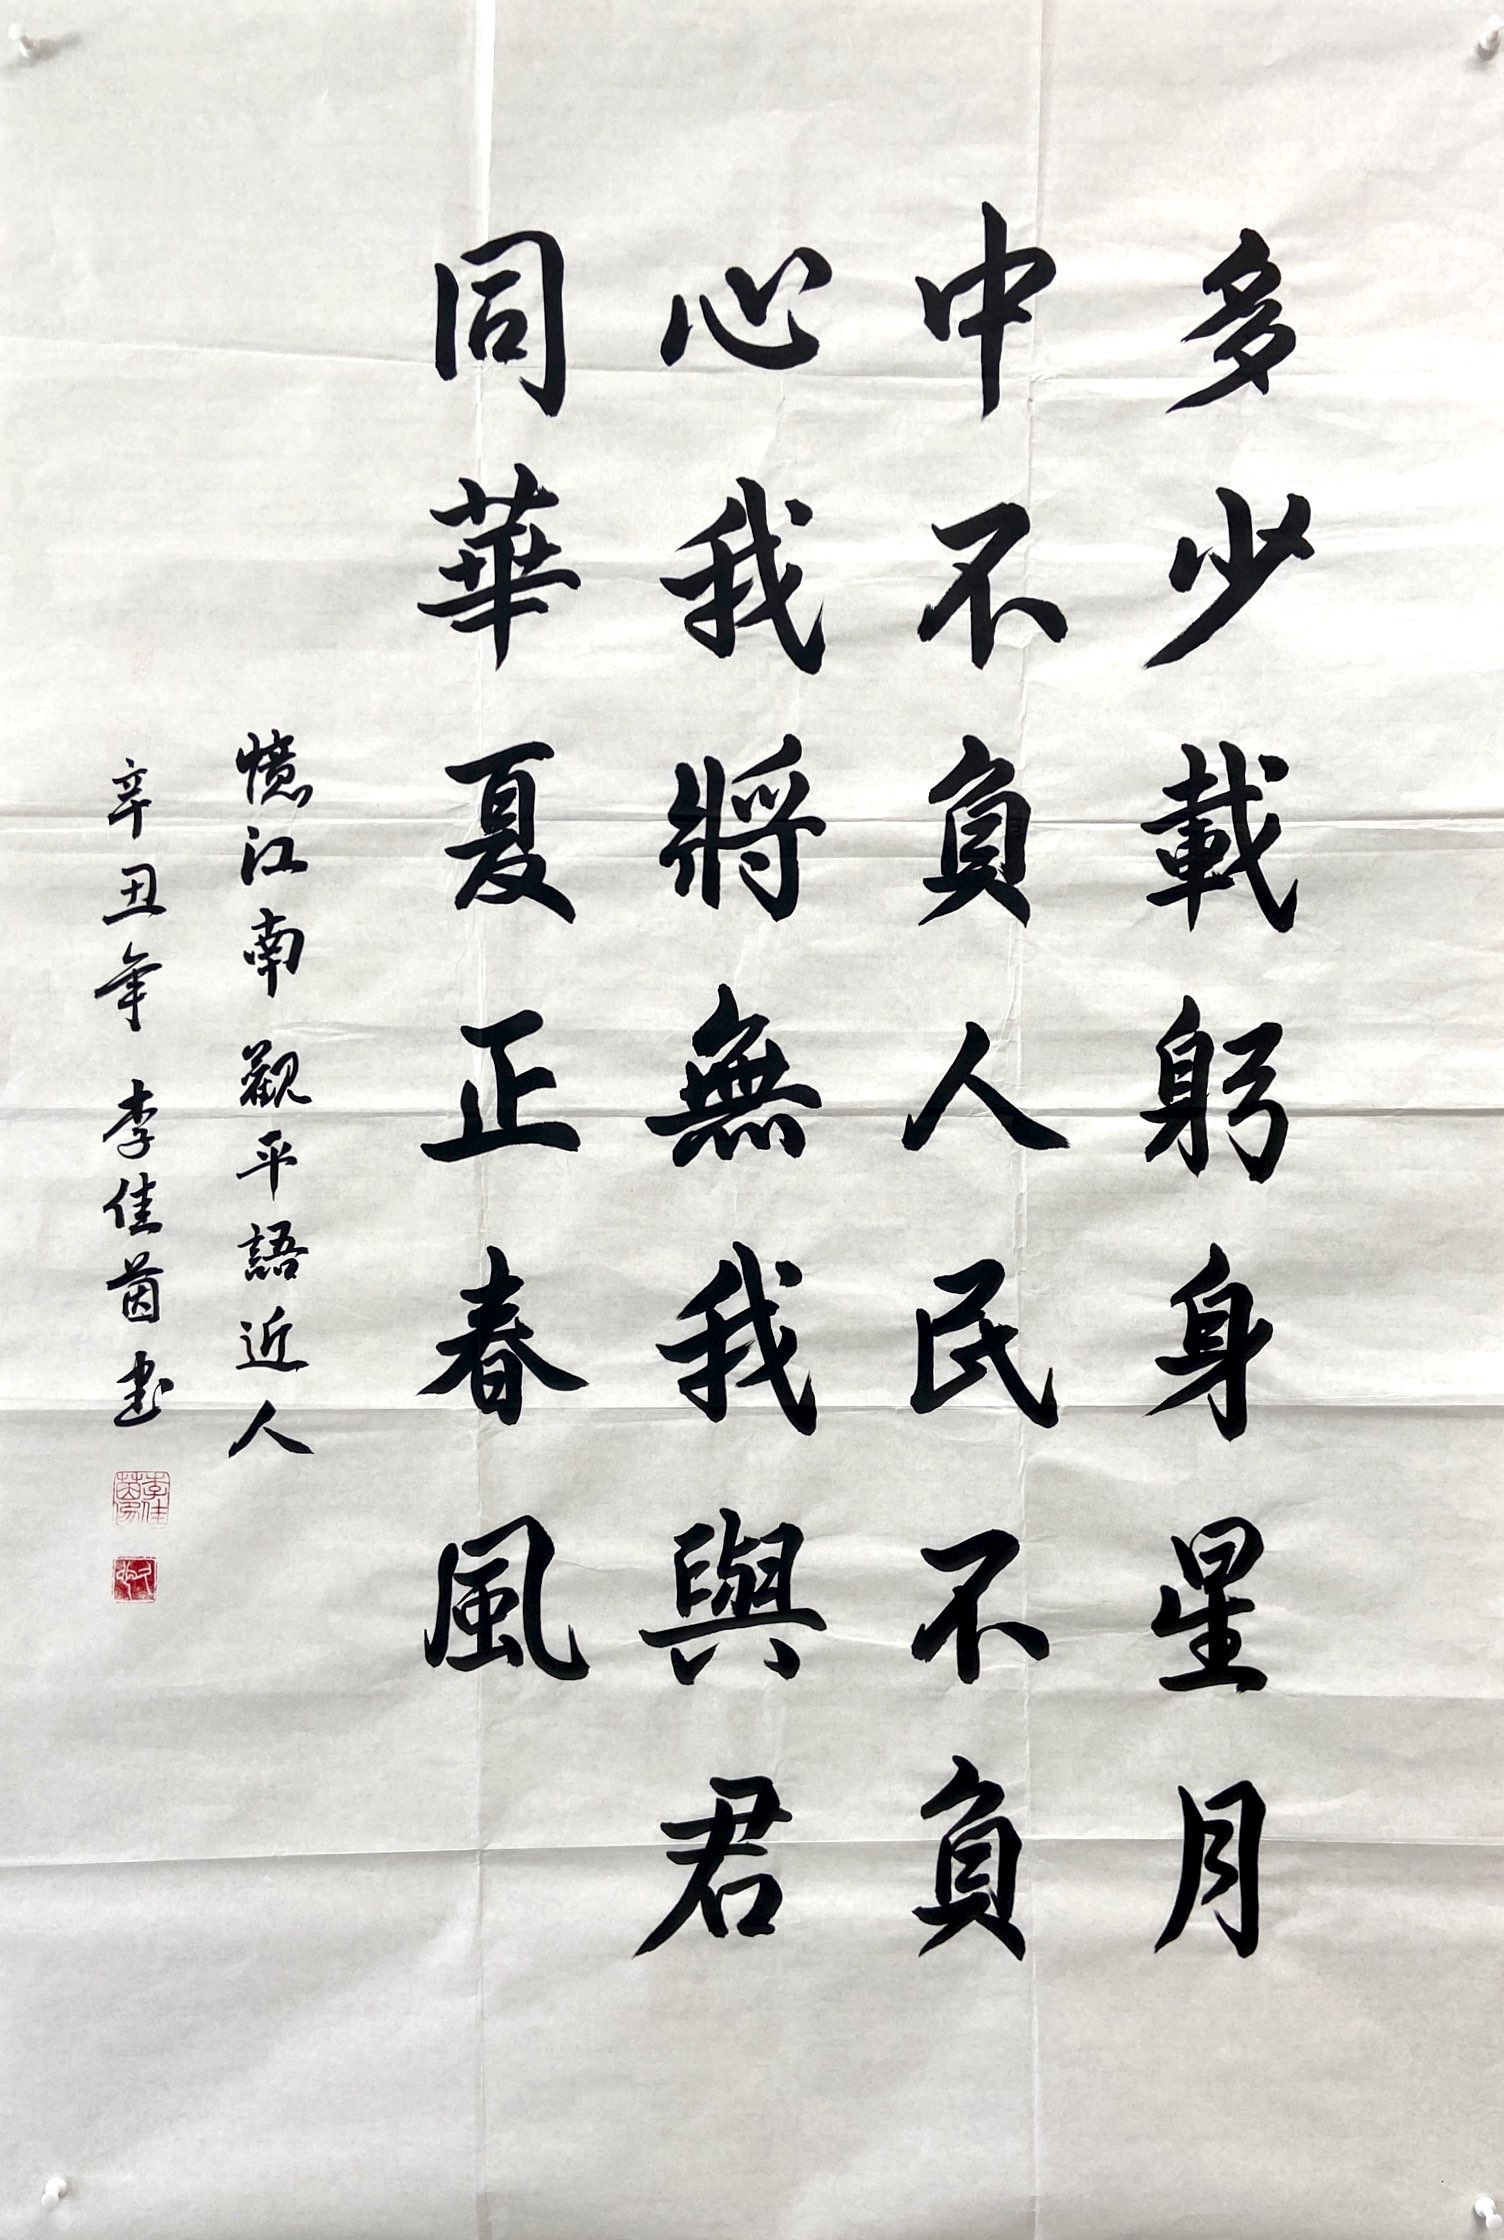 多少載躬身星月
中不負人民不負
心我將無我與君
同華夏正春風
憶江南觀平語近人
辛丑年李佳茵書
李佳茵印